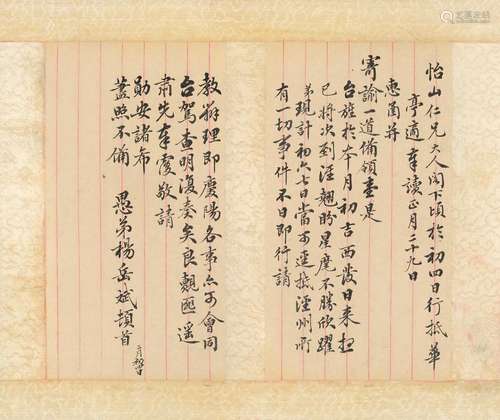 怡山仁兄大人閣下頃於初四日行抵華
亭適奉讀正月二十九日
惠函并
寄諭一道備領壹是
台旌於本月初吉西發日來想
已將次到涇翹盼星麾不勝欣躍
弟現計初六七日當可逕抵涇州所
有一切事件不日即行請
教辦理即慶陽各事亦可會同
台駕查明復奏矣良覿匪遥
肅先奉覆敬請
勛安諸布
藎照不備
愚弟楊岳斌頓首